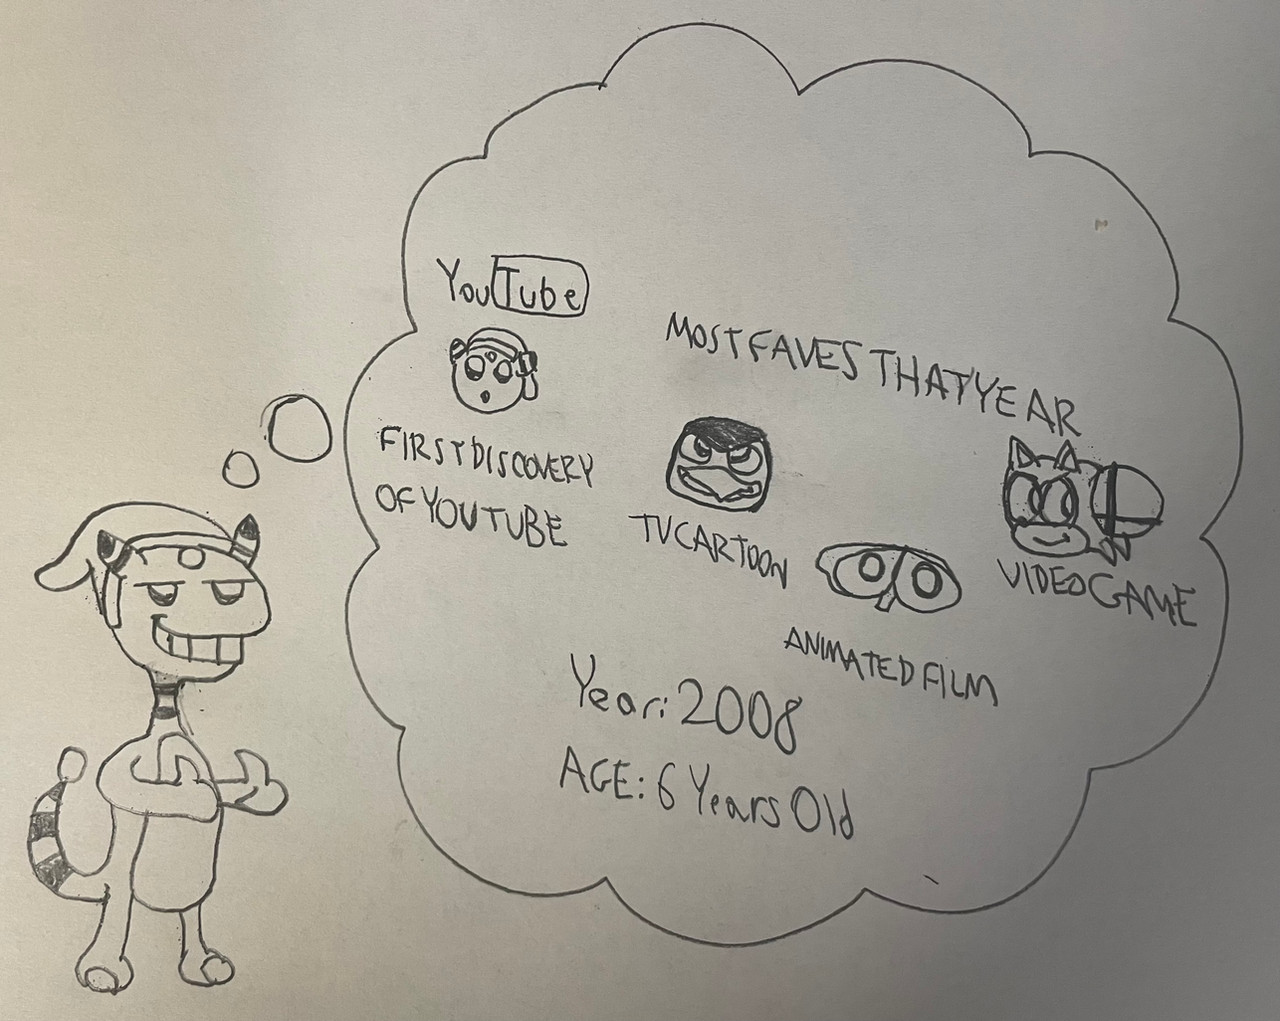 YouTube
FIRST DISCOVERY
OF YOUTUBE
MOST FAVES THAT YEAR
TV CARTOON
ANIMATED FILM
VIDEO GAME
Year: 2008
AGE: 6 Years Old